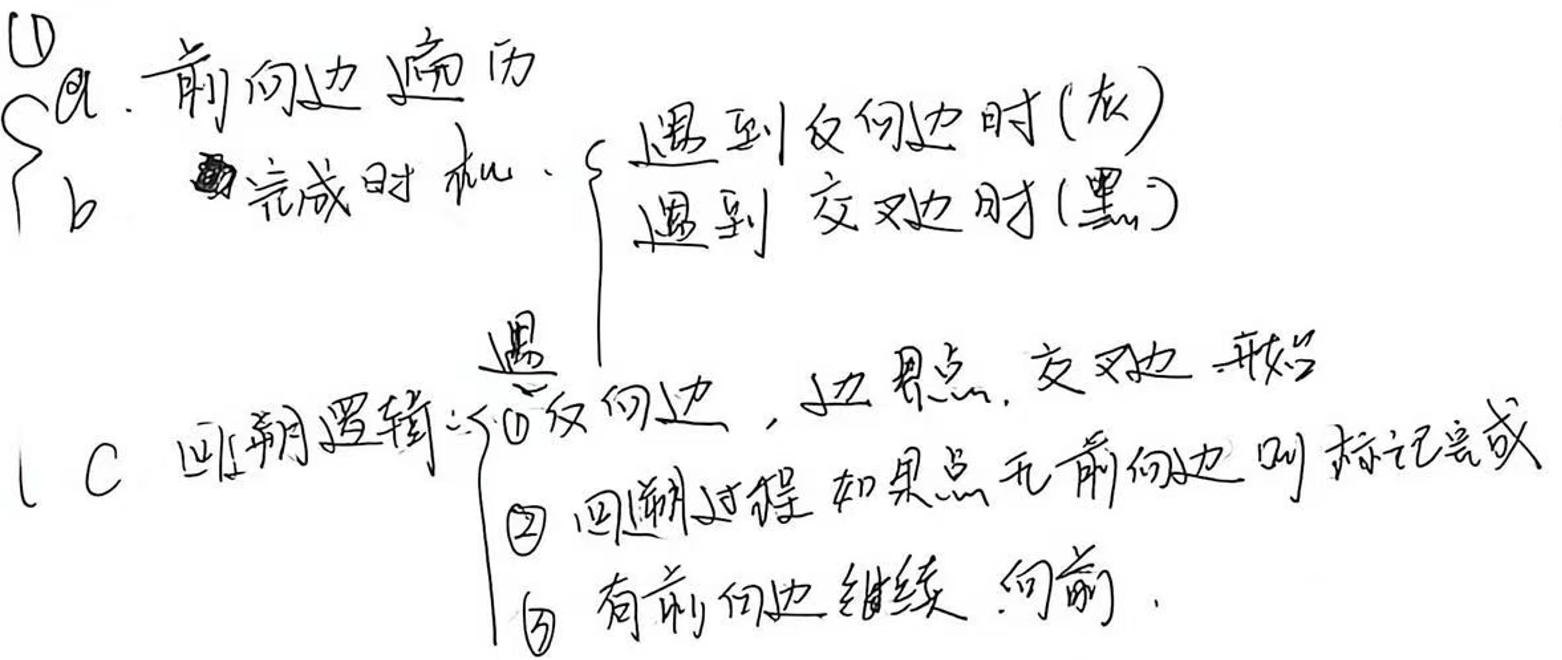 ①
a. 前向边遍历
b 完成时机. 遇到反向边时(灰)
遇到 交叉边时(黑)
c 回溯逻辑: 遇
①反向边, 边界点. 交叉边 开始
② 回溯过程 如果点无前向边 则 标记完成
③ 有前向边继续 向前.